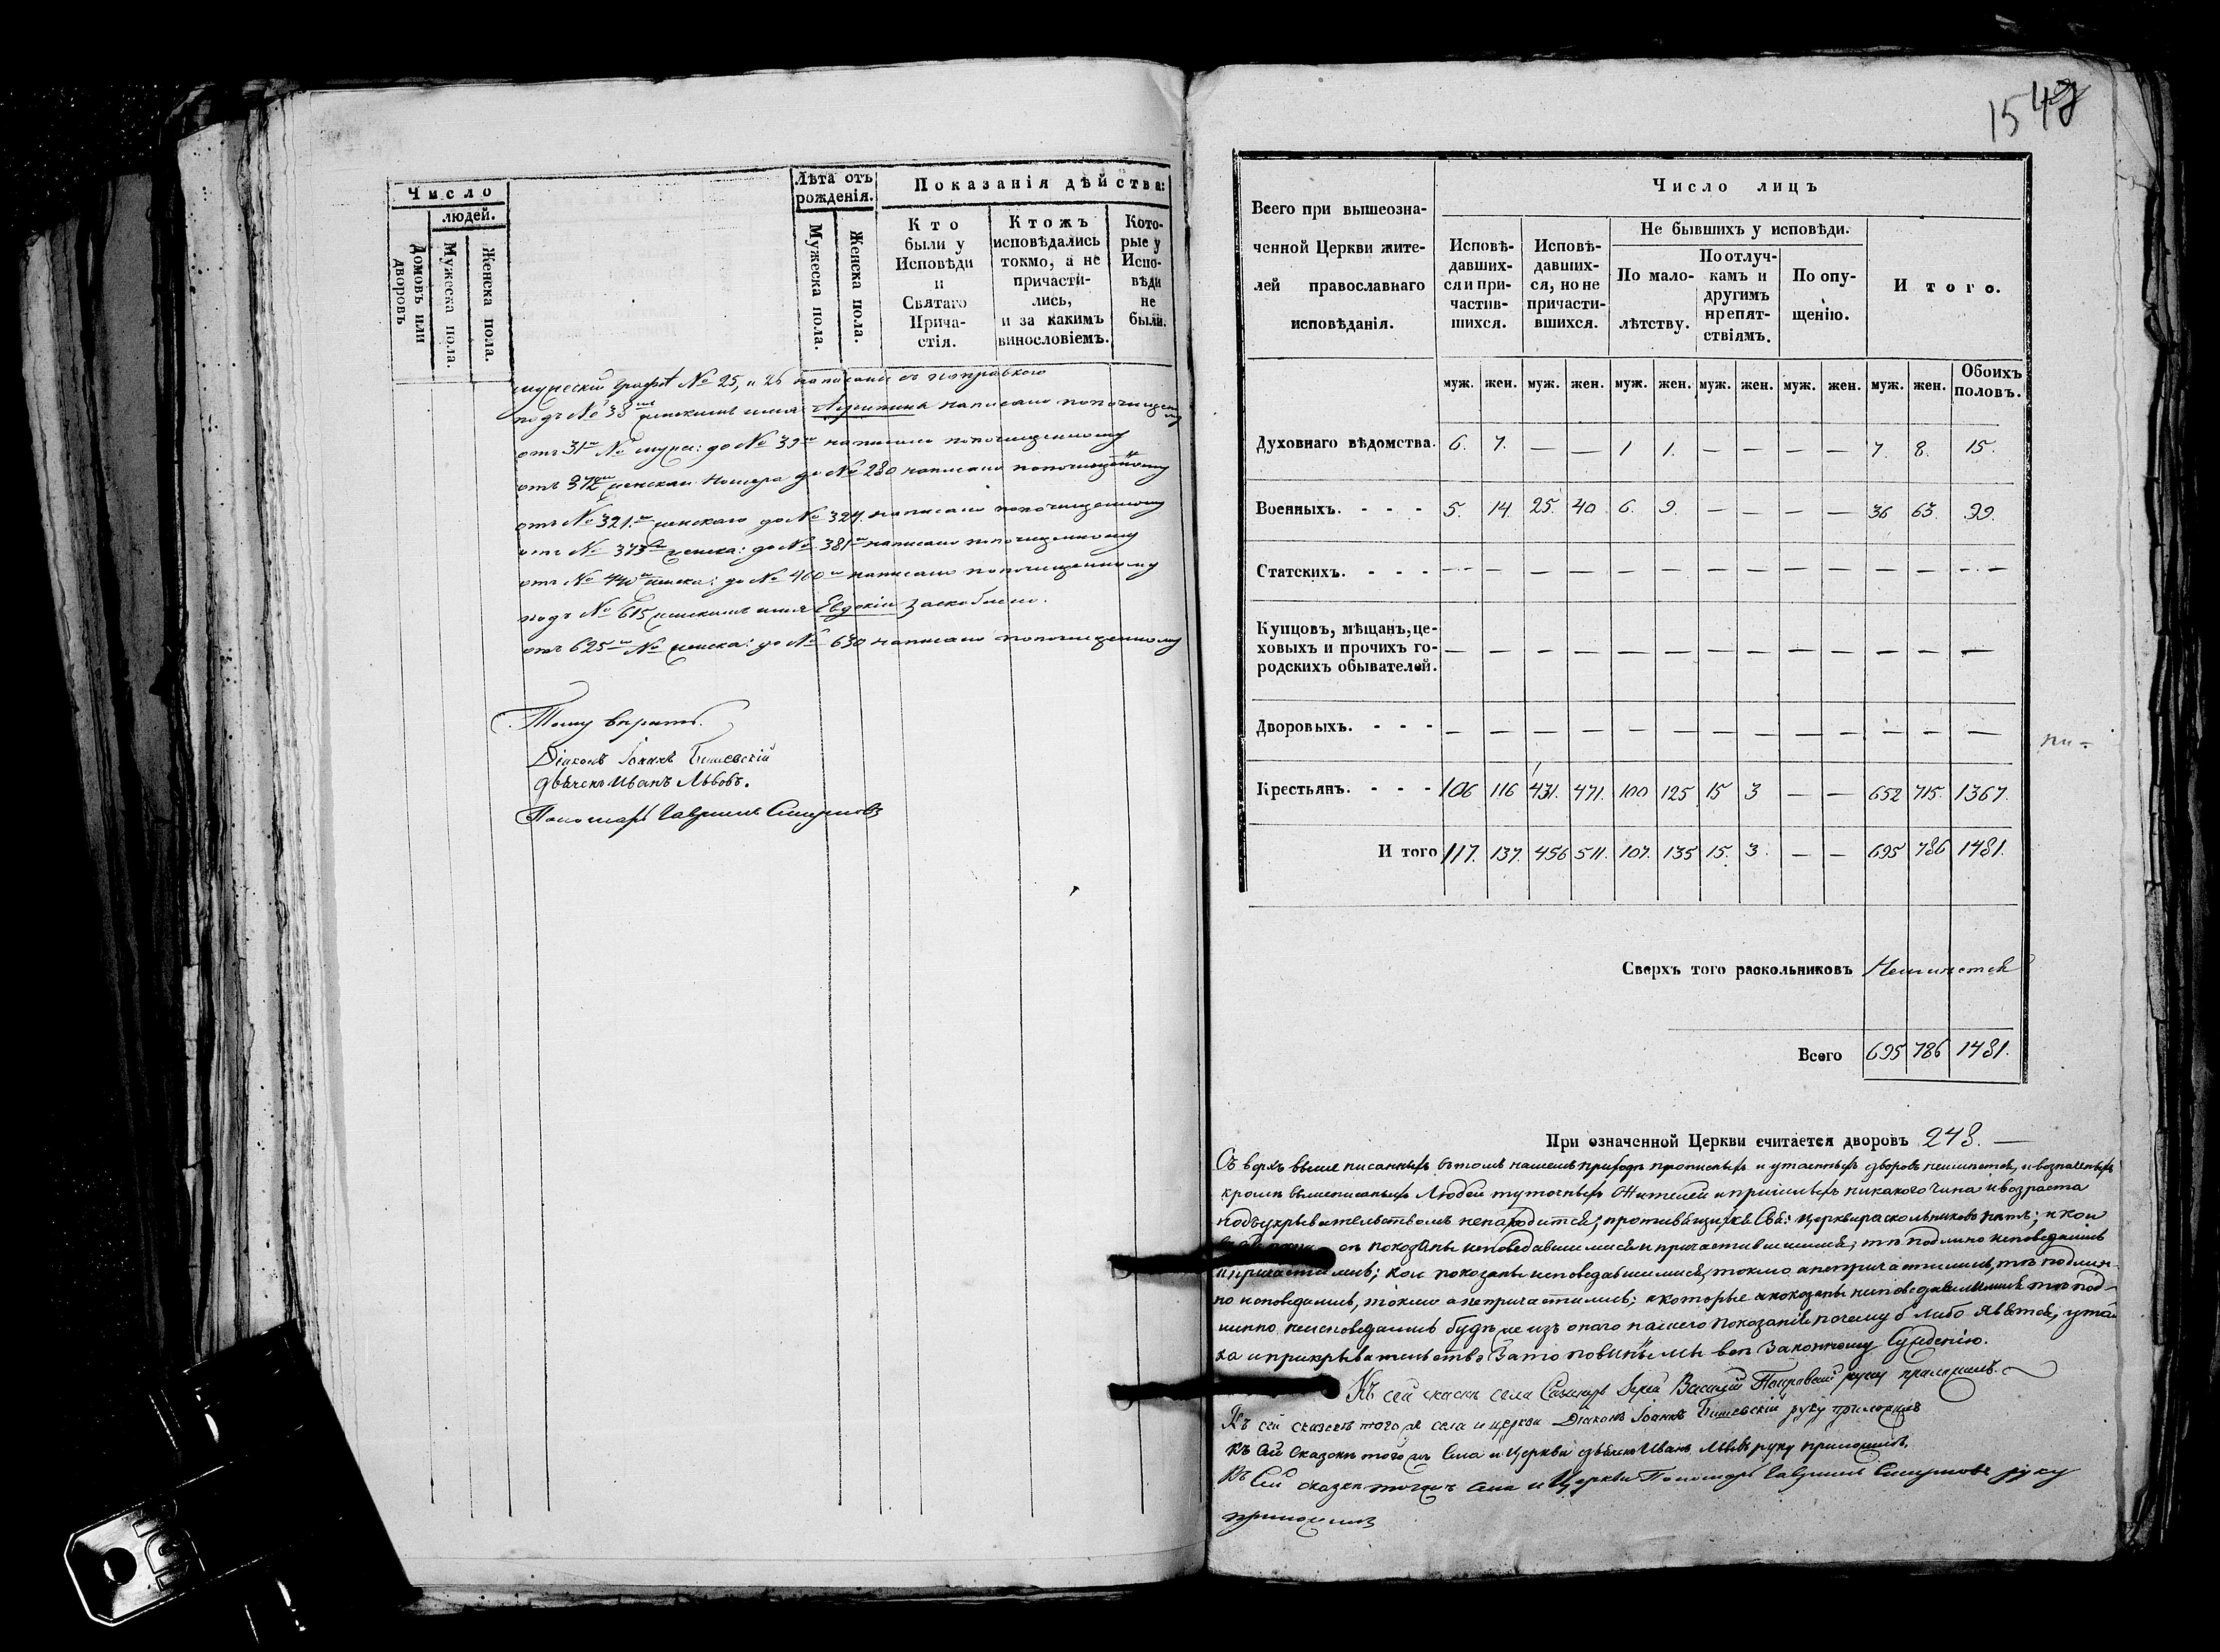 Число
людей.
Домовъ или дворовъ
Мужеска пола.
Женска пола.
Лѣта отъ рожденія.
Мужеска пола.
Женска пола.
Показанія дѣйства:
Кто были у Исповѣди и Святаго Прича- стія.
Ктожъ исповѣдались токмо, а не причасти- лись, и за какимъ винословіемъ.
Кото- рые у Испо- вѣди не были.
№ 25, и 26 написаны съ поправкою
подъ № 38 женскимъ имя написано
отъ 31 № до № 39 написано попочищенному
отъ 372 женскаго номера до № 280 написано попочищенному
отъ № 321 женскаго до № 324 написано попочищенному
отъ № 373 женска: до № 381 написано попочищенному
отъ № 440 женска: до № 460 написано попочищенному
подъ № 615 женскимъ имя Евдокіи заскоблено.
отъ 625 № женска: до № 630 написано попочищенному
Тому вѣрить.
Діаконъ Іоаннъ
дьячекъ Иванъ Львовъ.
Пономарь Гавриилъ Смирновъ
154
Всего при вышеозна-
ченной Церкви жите-
лей православнаго
исповѣданія.
Число лицъ
Исповѣ- давших- ся и при- частив- шихся.
Исповѣ- давших- ся, но не причасти- вшихся.
Не бывшихъ у исповѣди.
По мало- лѣтству.
По отлуч- камъ и другимъ препят- ствіямъ.
По опу- щенію.
Итого.
муж. жен. муж. жен. муж. жен. муж. жен. муж. жен. муж. жен. Обоихъ половъ.
Духовнаго вѣдомства. 6. 7. — — 1 1. — — — — 7. 8. 15.
Военныхъ. - - - 5. 14. 25. 40. 6. 9. — — — — 36 63. 99.
Статскихъ. - - - — — — — — — — — — — — — —
Купцовъ, мѣщанъ, це-
ховыхъ и прочихъ го-
родскихъ обывателей. — — — — — — — — — — — — —
Дворовыхъ. - - - — — — — — — — — — — — — —
Крестьянъ. - - - 106 116 431. 471. 100 125 15 3 — — 652 715. 1367.
И того 117. 137. 456 511. 107. 135 15. 3. — — 695 786 1481.
Сверхъ того раскольниковъ Неимѣется
Всего 695 786 1481.
При означенной Церкви считается дворовъ 248. —
Сверхъ выше писанныхъ въ томъ нашемъ приходѣ прописныхъ и утаенныхъ дворовъ неимѣется, и
кромѣ вышеписанныхъ Людей туточныхъ Жителей и пришлыхъ никакого чина и возраста
подъ укрывательствомъ ненаходится; Церкви раскольниковъ нѣтъ; и кои
показаны исповедавшимися и причастившимися; тѣ подлино исповедались
и причастились; кои показаны исповедавшимися, токмо а непричастились, тѣ подлин-
но исповедались, токмо а непричастились; а которые показаны неисповедавшимися тѣ под-
линно неисповедались будѣ же изъ онаго нашего показанія почему б либо явѣтся, утай
ка и прикрывательство Зато повинны мы Законному Сужденію.
Къ сей сказкѣ села Іерей Василій руку приложилъ.
Къ сей сказкѣ того же села и церкви Діаконъ Іоаннъ руку приложилъ
Къ сей Сказкѣ того жъ Села и Церкви дьячекъ Иванъ Львовъ руку приложилъ.
Къ Сей сказкѣ тогожъ села и Церкви Пономарь Гавриилъ Смирновъ руку
приложилъ